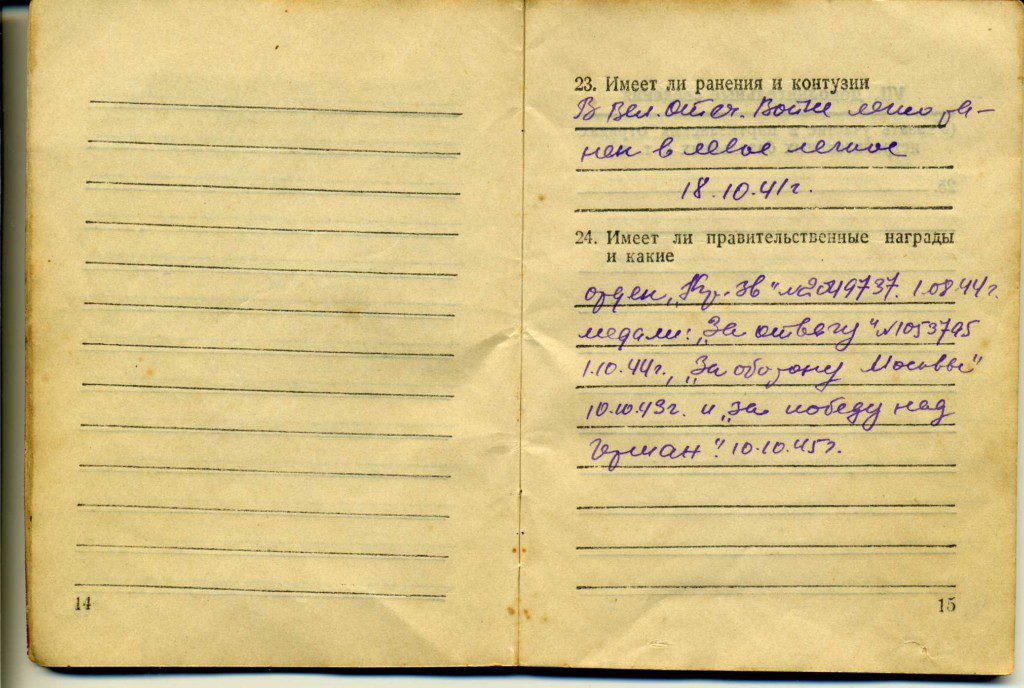 23. Имеет ли ранения и контузии
В Вел. Отеч. Войне легко ра-
нен в левое легкое
18.10.41г.
24. Имеет ли правительственные награды
и какие
орден „Кр. Зв" №2049737. 1.08.44г.
медали: „За отвагу" №1053795
1.10.44г., „За оборону Москвы"
10.10.43г. и „За победу над
Герман". 10.10.45г.
14
15